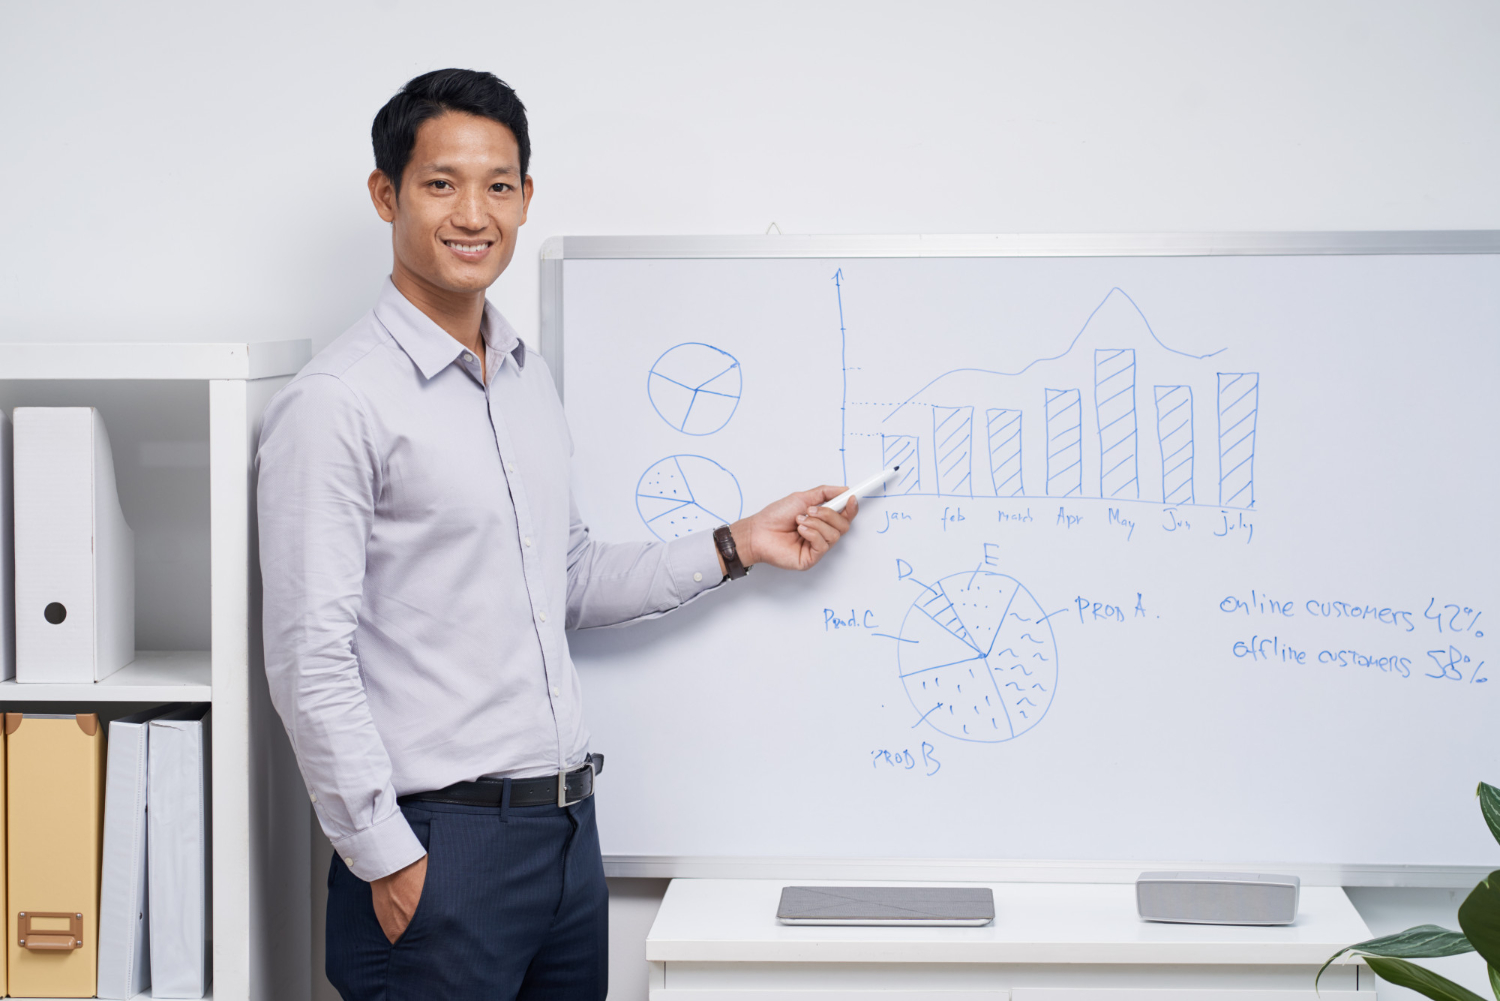 jan feb march Apr May Jun july
E
D
Prod. C
PROD A.
PROD B
online customers 42%
offline customers 58%